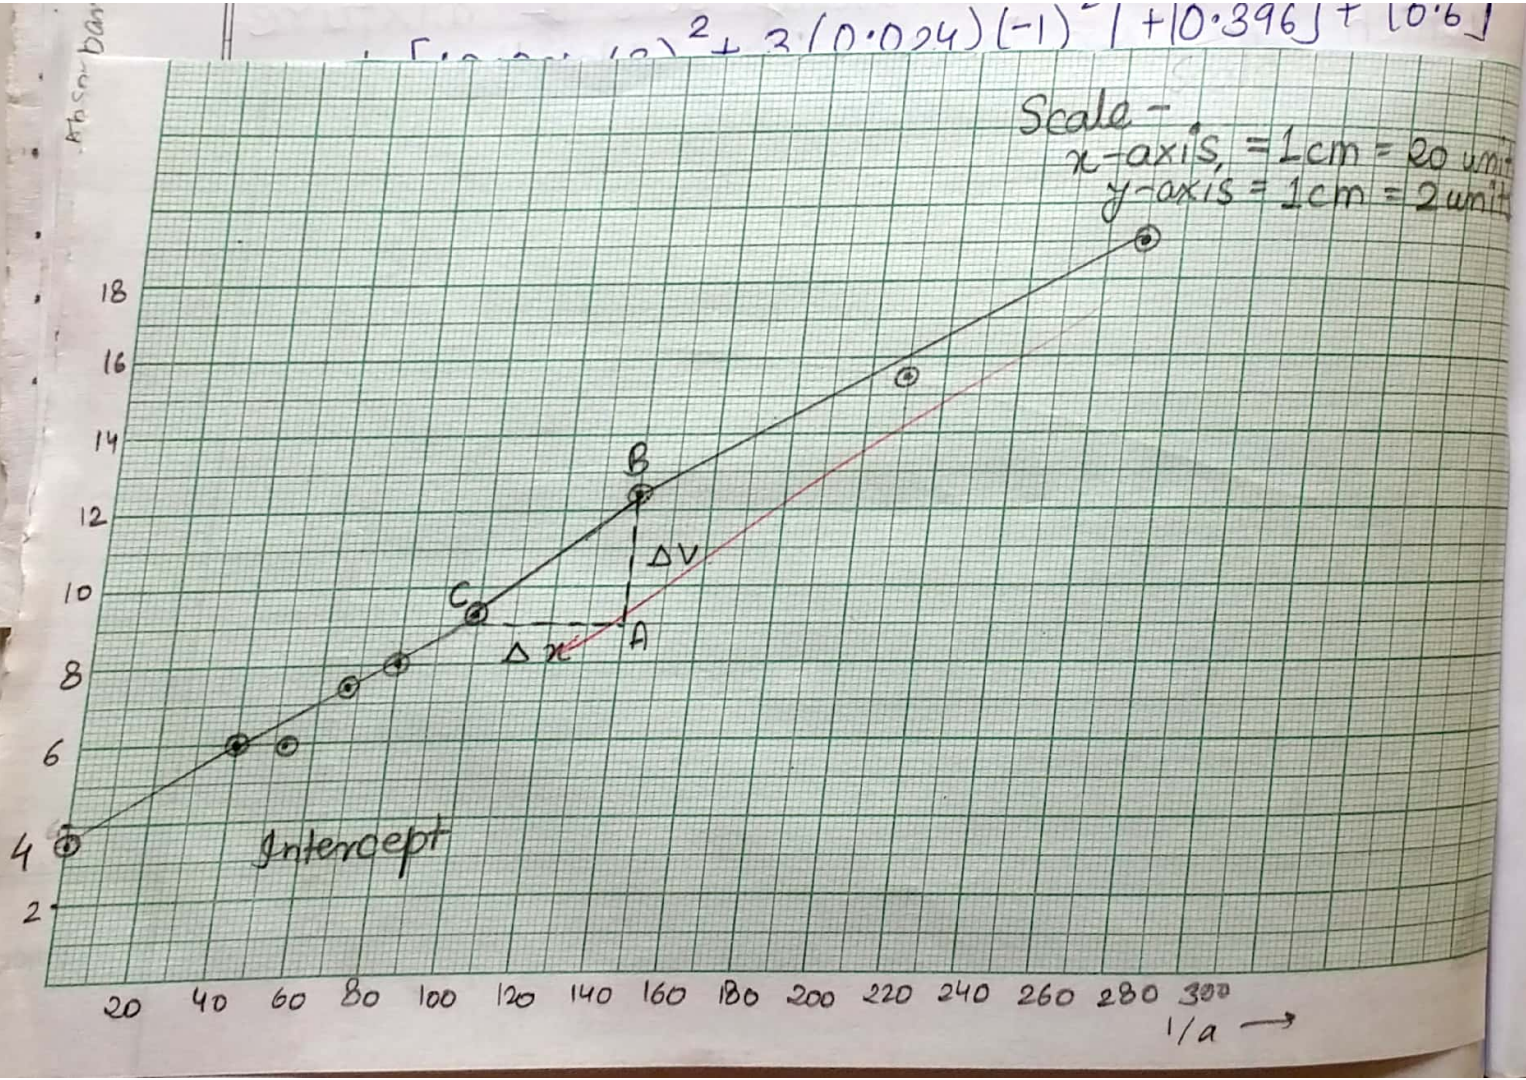 Absorban
2 + 3(0.024)(-1) + [0.396] + [0.6]
Scale -
x-axis, = 1cm = 20 unit
y-axis = 1cm = 2 unit
18
16
14
B
12
ΔV
10
C
A
Δ x
8
6
4
Intercept
2
20 40 60 80 100 120 140 160 180 200 220 240 260 280 300
1/a →